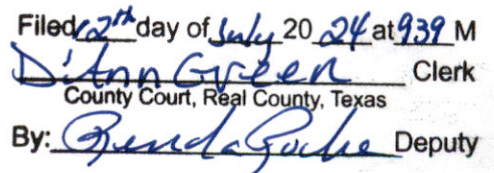 Filed 12th day of July 20 24 at 939 M
D'Ann Green Clerk
County Court, Real County, Texas
By: Deputy